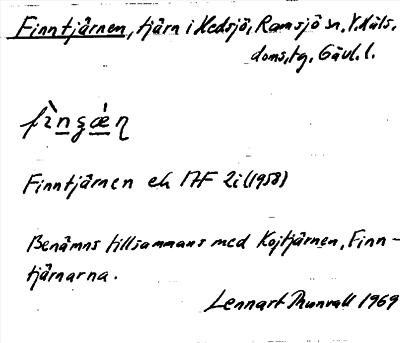 Finntjärnen, tjärn i Hedsjö, Ramsjö sn, V. Häls.
doms.tg, Gävl. l.
fìnʂæ̀ɳ
Finntjärnen ek 17F 2i (1958)
Benämns tillsammans med Kojtjärnen, Finn-
tjärnarna.
Lennart Thunvall 1969